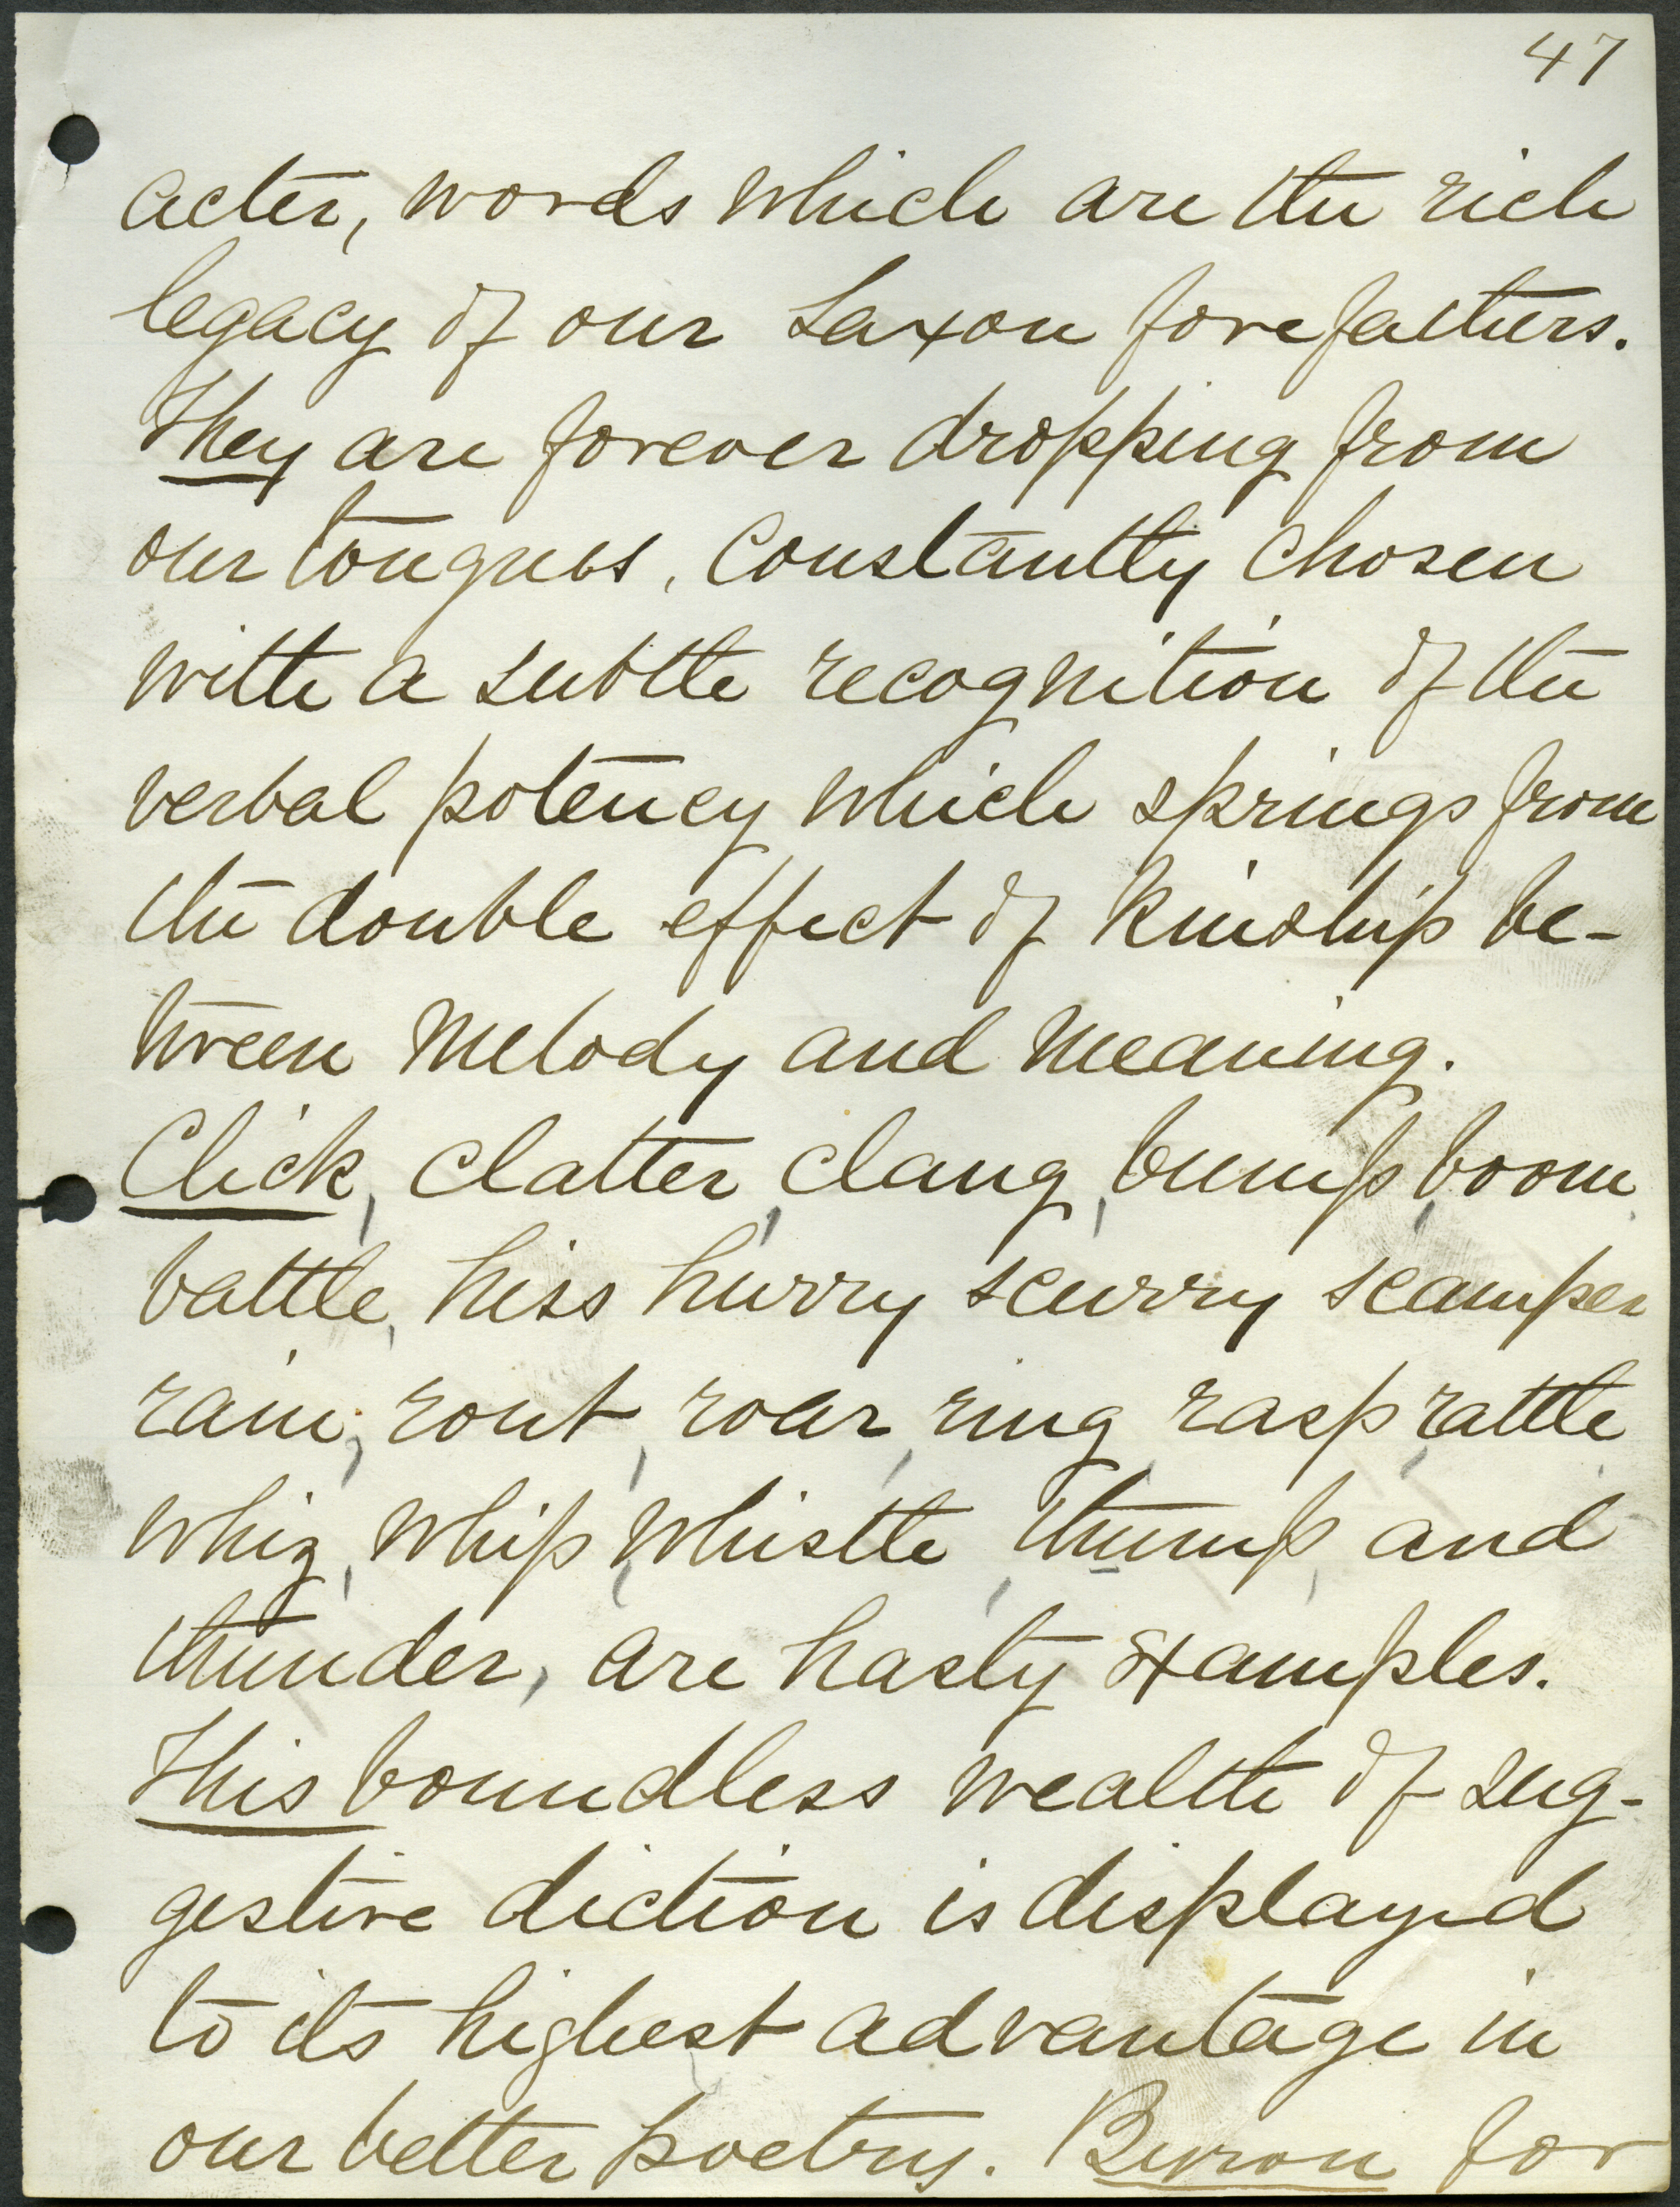 47
acter, words which are the rich
legacy of our Saxon forefathers.
They are forever dropping from
our tongues, constantly chosen
with a subtle recognition of the
verbal potency which springs from
the double effect of kinship be-
tween melody and meaning.
Click, clatter, clang, bump, boom,
battle, hiss hurry scurry scamper
rain, rout, roar, ring, rasp, rattle,
whiz, whip, whistle, thump, and
thunder, are hasty examples.
This boundless wealth of sug-
gestive diction is displayed
to its highest advantage in
our better poetry. Byron for